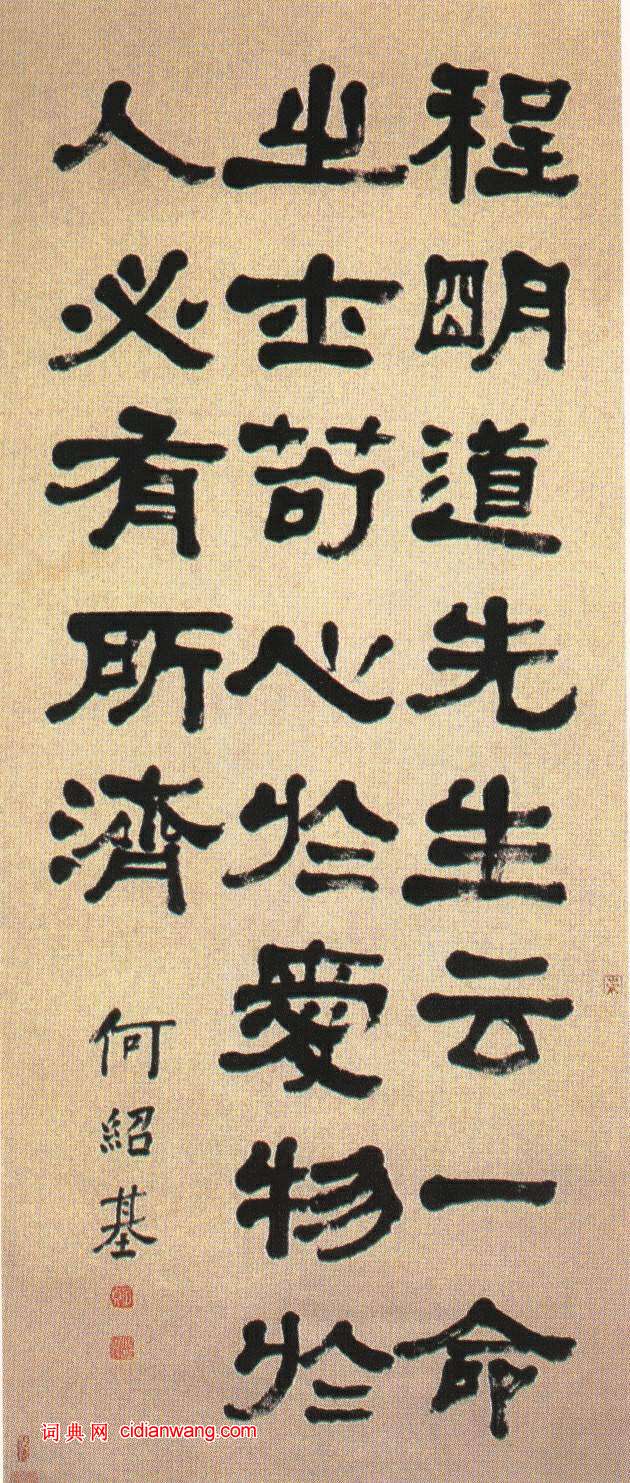 程明道先生云一命
之士苟心於愛物於
人必有所濟
何紹基
词典网 cidianwang.com